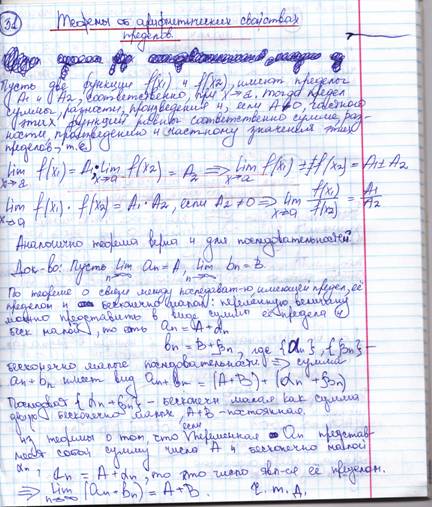 32
Теоремы об арифметических свойствах
пределов.
Пусть две функции f(x₁) и f(x₂), имеют пределы
A₁ и A₂, соответственно, при x→a, тогда предел
суммы, разности, произведения и, если A≠0, частного
этих функций равны соответственно сумме, раз-
ности, произведению и частному значений этих
пределов, т.е.
lim x→a f(x₁) = A₁; lim x→a f(x₂) = A₂ ⇒ lim x→a f(x₁) ± f(x₂) = A₁ ± A₂
lim x→a f(x₁) · f(x₂) = A₁ · A₂, если A₂ ≠ 0 ⇒ lim x→a f(x₁)/f(x₂) = A₁/A₂
Аналогично теорема верна и для последовательностей.
Док-во: Пусть lim n→∞ aₙ = A, lim n→∞ bₙ = B.
По теореме о связи между последоват-ю имеющей предел, её
пределом и бесконечно малой: переменную величину
можно представить в виде суммы её предела и
беск малой, то есть aₙ = A + αₙ
bₙ = B + βₙ, где {αₙ}, {βₙ} –
бесконечно малые последовательности ⇒ сумма
aₙ + bₙ имеет вид aₙ + bₙ = (A+B) + (αₙ + βₙ)
Последоват {αₙ + βₙ} – бесконечн малая как сумма
двух бесконечно малых, A+B – постоянная.
из теоремы о том, что если переменная aₙ представ-
ляет собой сумму числа A и бесконечно малой
αₙ, aₙ = A + αₙ, то это число явл-ся её пределом.
⇒ lim n→∞ (aₙ + bₙ) = A + B. Ч.т.д.